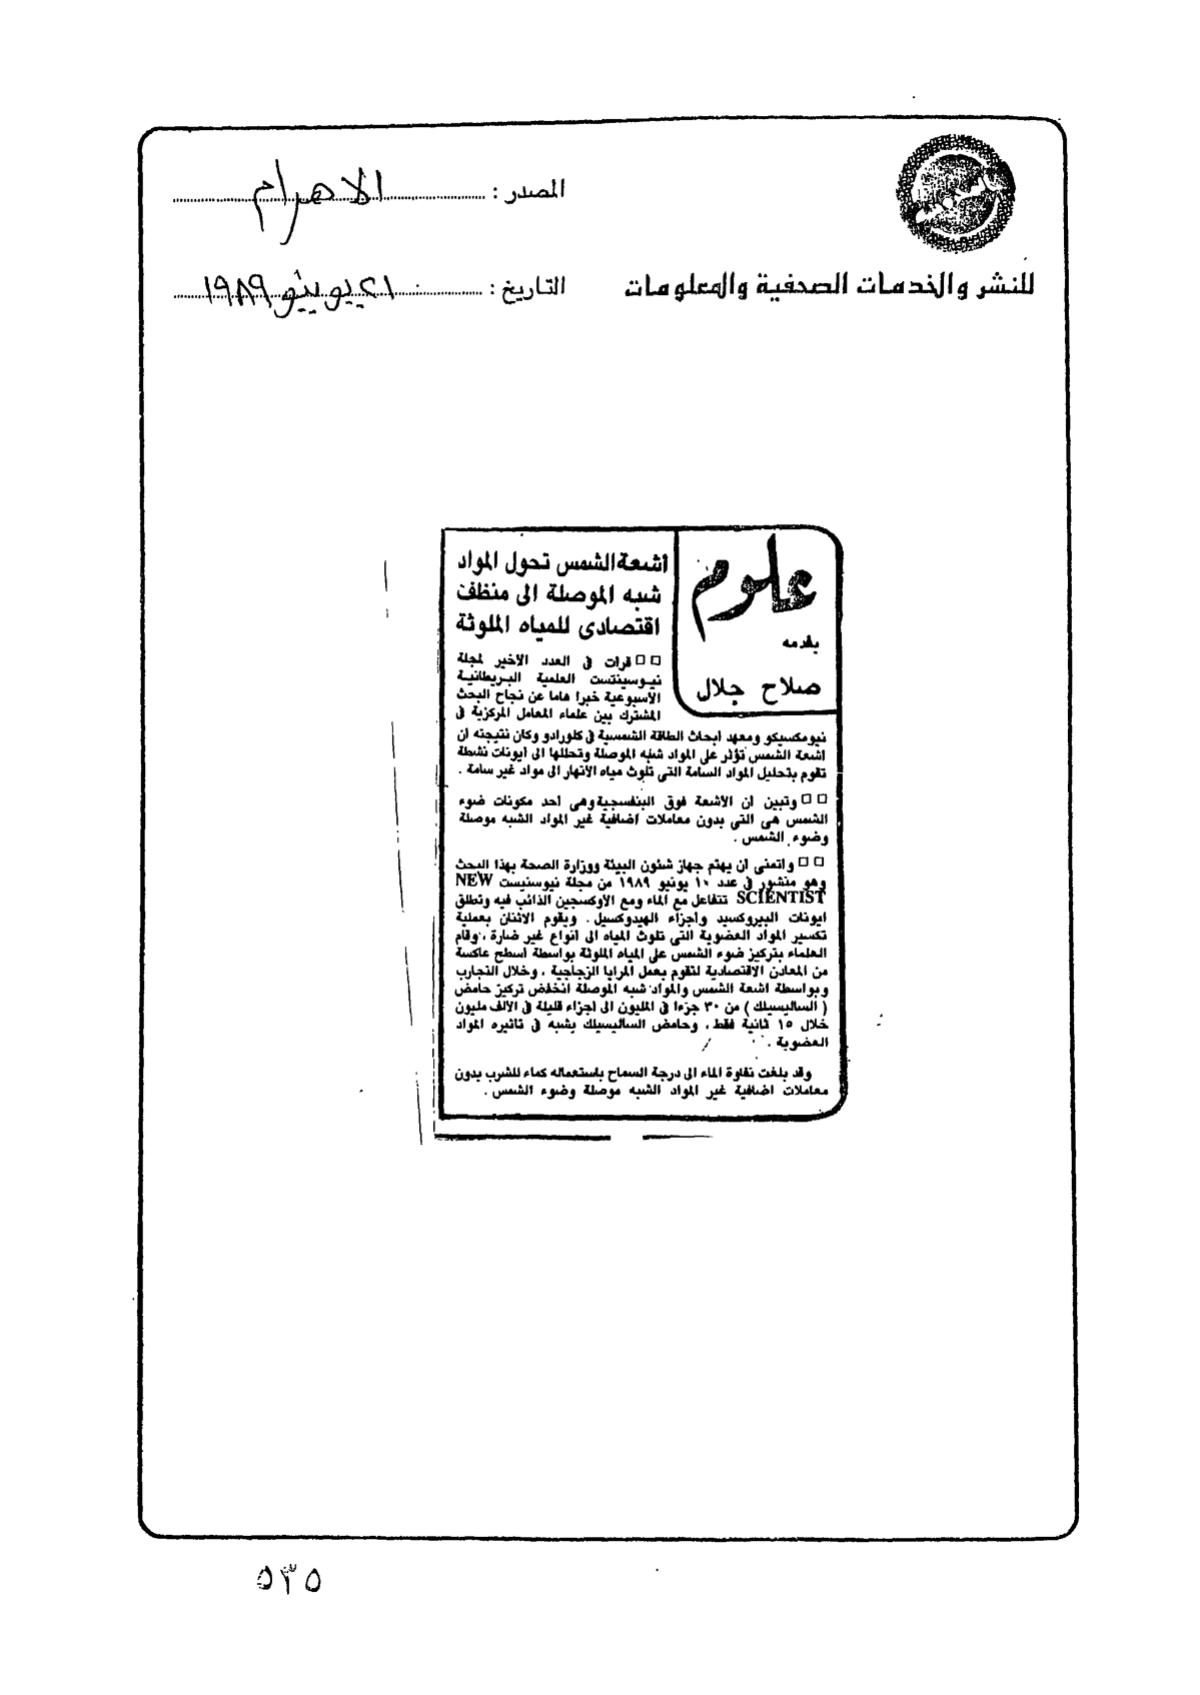 المصدر : الاهرام
للنشر والخدمات الصحفية والمعلومات
التاريخ : ٢١ يونيو ١٩٨٩
علوم
بقدمه
صلاح جلال
أشعة الشمس تحول المواد
شبه الموصلة الى منظف
اقتصادى للمياه الملوثة
□□ قرات فى العدد الأخير لمجلة
نيوسينتست العلمية البريطانية
الأسبوعية خبرا هاما عن نجاح البحث
المشترك بين علماء المعامل المركزية فى
نيومكسيكو ومعهد أبحاث الطاقة الشمسية فى كلورادو وكان نتيجته ان
اشعة الشمس تؤثر على المواد شبه الموصلة وتحللها الى أيونات نشطة
تقوم بتحليل المواد السامة التى تلوث مياه الأنهار الى مواد غير سامة .
□□ وتبين أن الأشعة فوق البنفسجية وهى أحد مكونات ضوء
الشمس هى التى بدون معاملات اضافية غير المواد الشبه موصلة
وضوء الشمس .
□□ واتمنى ان يهتم جهاز شئون البيئة ووزارة الصحة بهذا البحث
وهو منشور فى عدد ١٠ يونيو ١٩٨٩ من مجلة نيوسنيست NEW
SCIENTIST تتفاعل مع الماء ومع الأوكسجين الذائب فيه وتطلق
ايونات البيروكسيد وأجزاء الهيدوكسيل . ويقوم الاثنان بعملية
تكسير المواد العضوية التى تلوث المياه الى أنواع غير ضارة ، وقام
العلماء بتركيز ضوء الشمس على المياه الملوثة بواسطة أسطح عاكسة
من المعادن الاقتصادية لتقوم بعمل المرايا الزجاجية ، وخلال التجارب
وبواسطة اشعة الشمس والمواد شبه الموصلة انخفض تركيز حامض
( الساليسيلك ) من ٣٠ جزءا فى المليون الى اجزاء قليلة فى الألف مليون
خلال ١٥ ثانية فقط ، وحامض الساليسيلك يشبه فى تأثيره المواد
العضوية .
وقد بلغت نقاوة الماء الى درجة السماح باستعماله كماء للشرب بدون
معاملات اضافية غير المواد الشبه موصلة وضوء الشمس .
٥٣٥